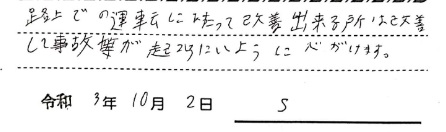 路上での運転に於って改善出来る所は改善
して事故等が起こらないように心がけます。
令和 3年 10月 2日 S